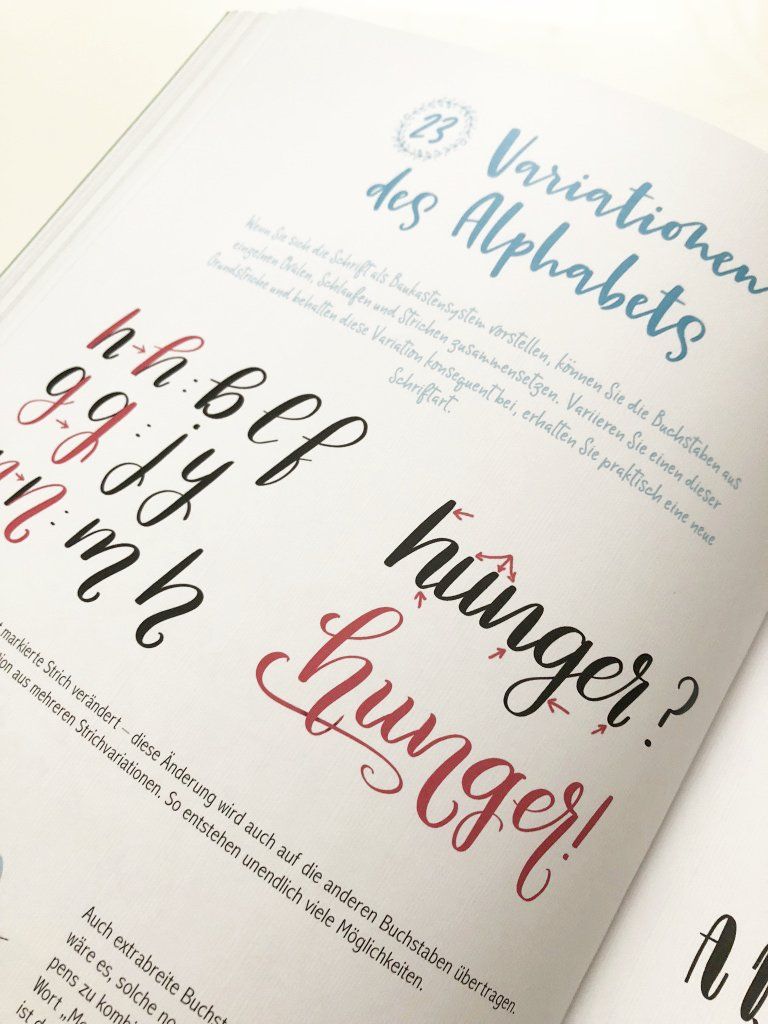 23 Variationen
des Alphabets
Wenn Sie sich die Schrift als Baukastensystem vorstellen, können Sie die Buchstaben aus
einzelnen Ovalen, Schlaufen und Strichen zusammensetzen. Variieren Sie einen dieser
Grundstriche und behalten diese Variation konsequent bei, erhalten Sie praktisch eine neue
Schriftart.
h → h : b l f
g → g : j y
n → n : m h
hunger?
hunger!
markierte Strich verändert – diese Änderung wird auch auf die anderen Buchstaben übertragen.
aus mehreren Strichvariationen. So entstehen unendlich viele Möglichkeiten.
Auch extrabreite
wäre es, solche
pens zu
Wort
ist
A